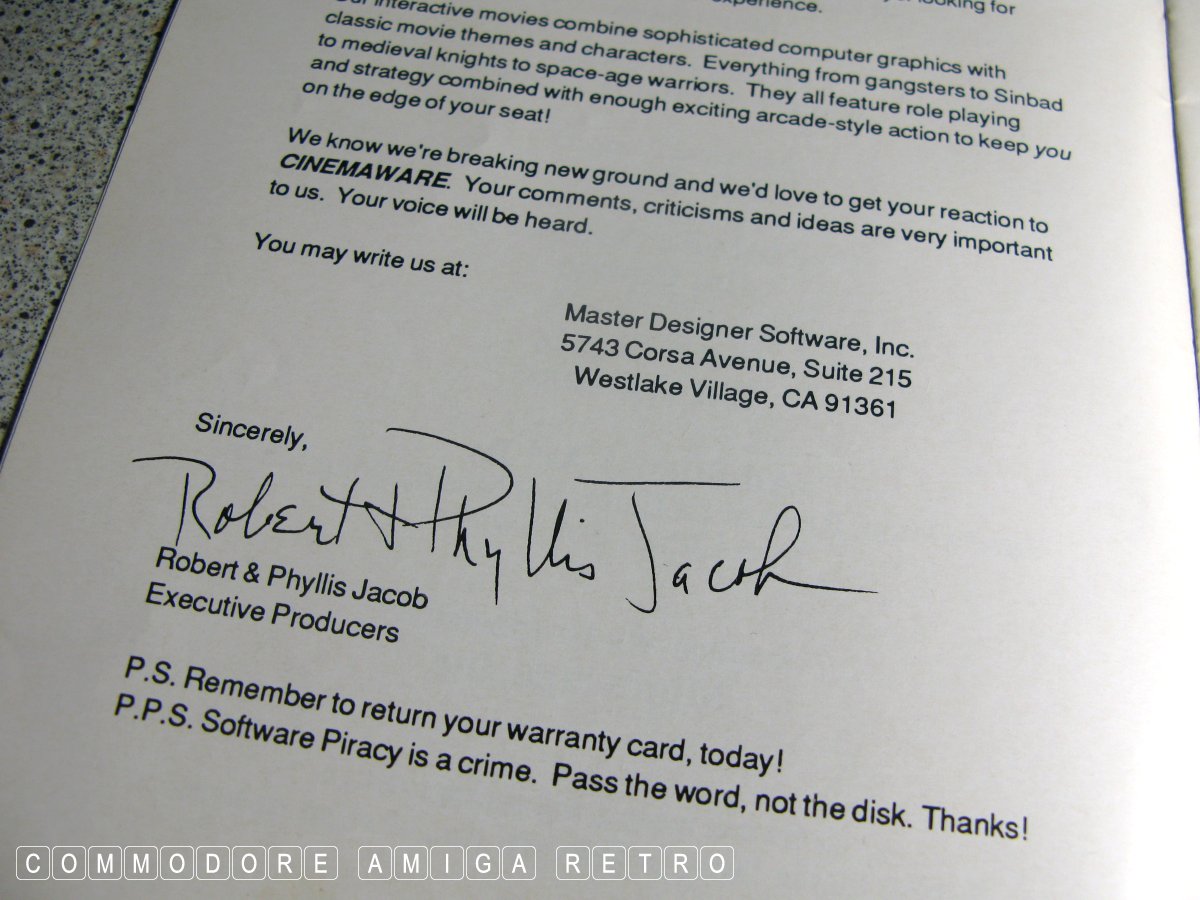 experience.
looking for
Our interactive movies combine sophisticated computer graphics with
classic movie themes and characters. Everything from gangsters to Sinbad
to medieval knights to space-age warriors. They all feature role playing
and strategy combined with enough exciting arcade-style action to keep you
on the edge of your seat!
We know we're breaking new ground and we'd love to get your reaction to
CINEMAWARE. Your comments, criticisms and ideas are very important
to us. Your voice will be heard.
You may write us at:
Master Designer Software, Inc.
5743 Corsa Avenue, Suite 215
Westlake Village, CA 91361
Sincerely,
Robert & Phyllis Jacob
Robert & Phyllis Jacob
Executive Producers
P.S. Remember to return your warranty card, today!
P.P.S. Software Piracy is a crime. Pass the word, not the disk. Thanks!
COMMODORE AMIGA RETRO